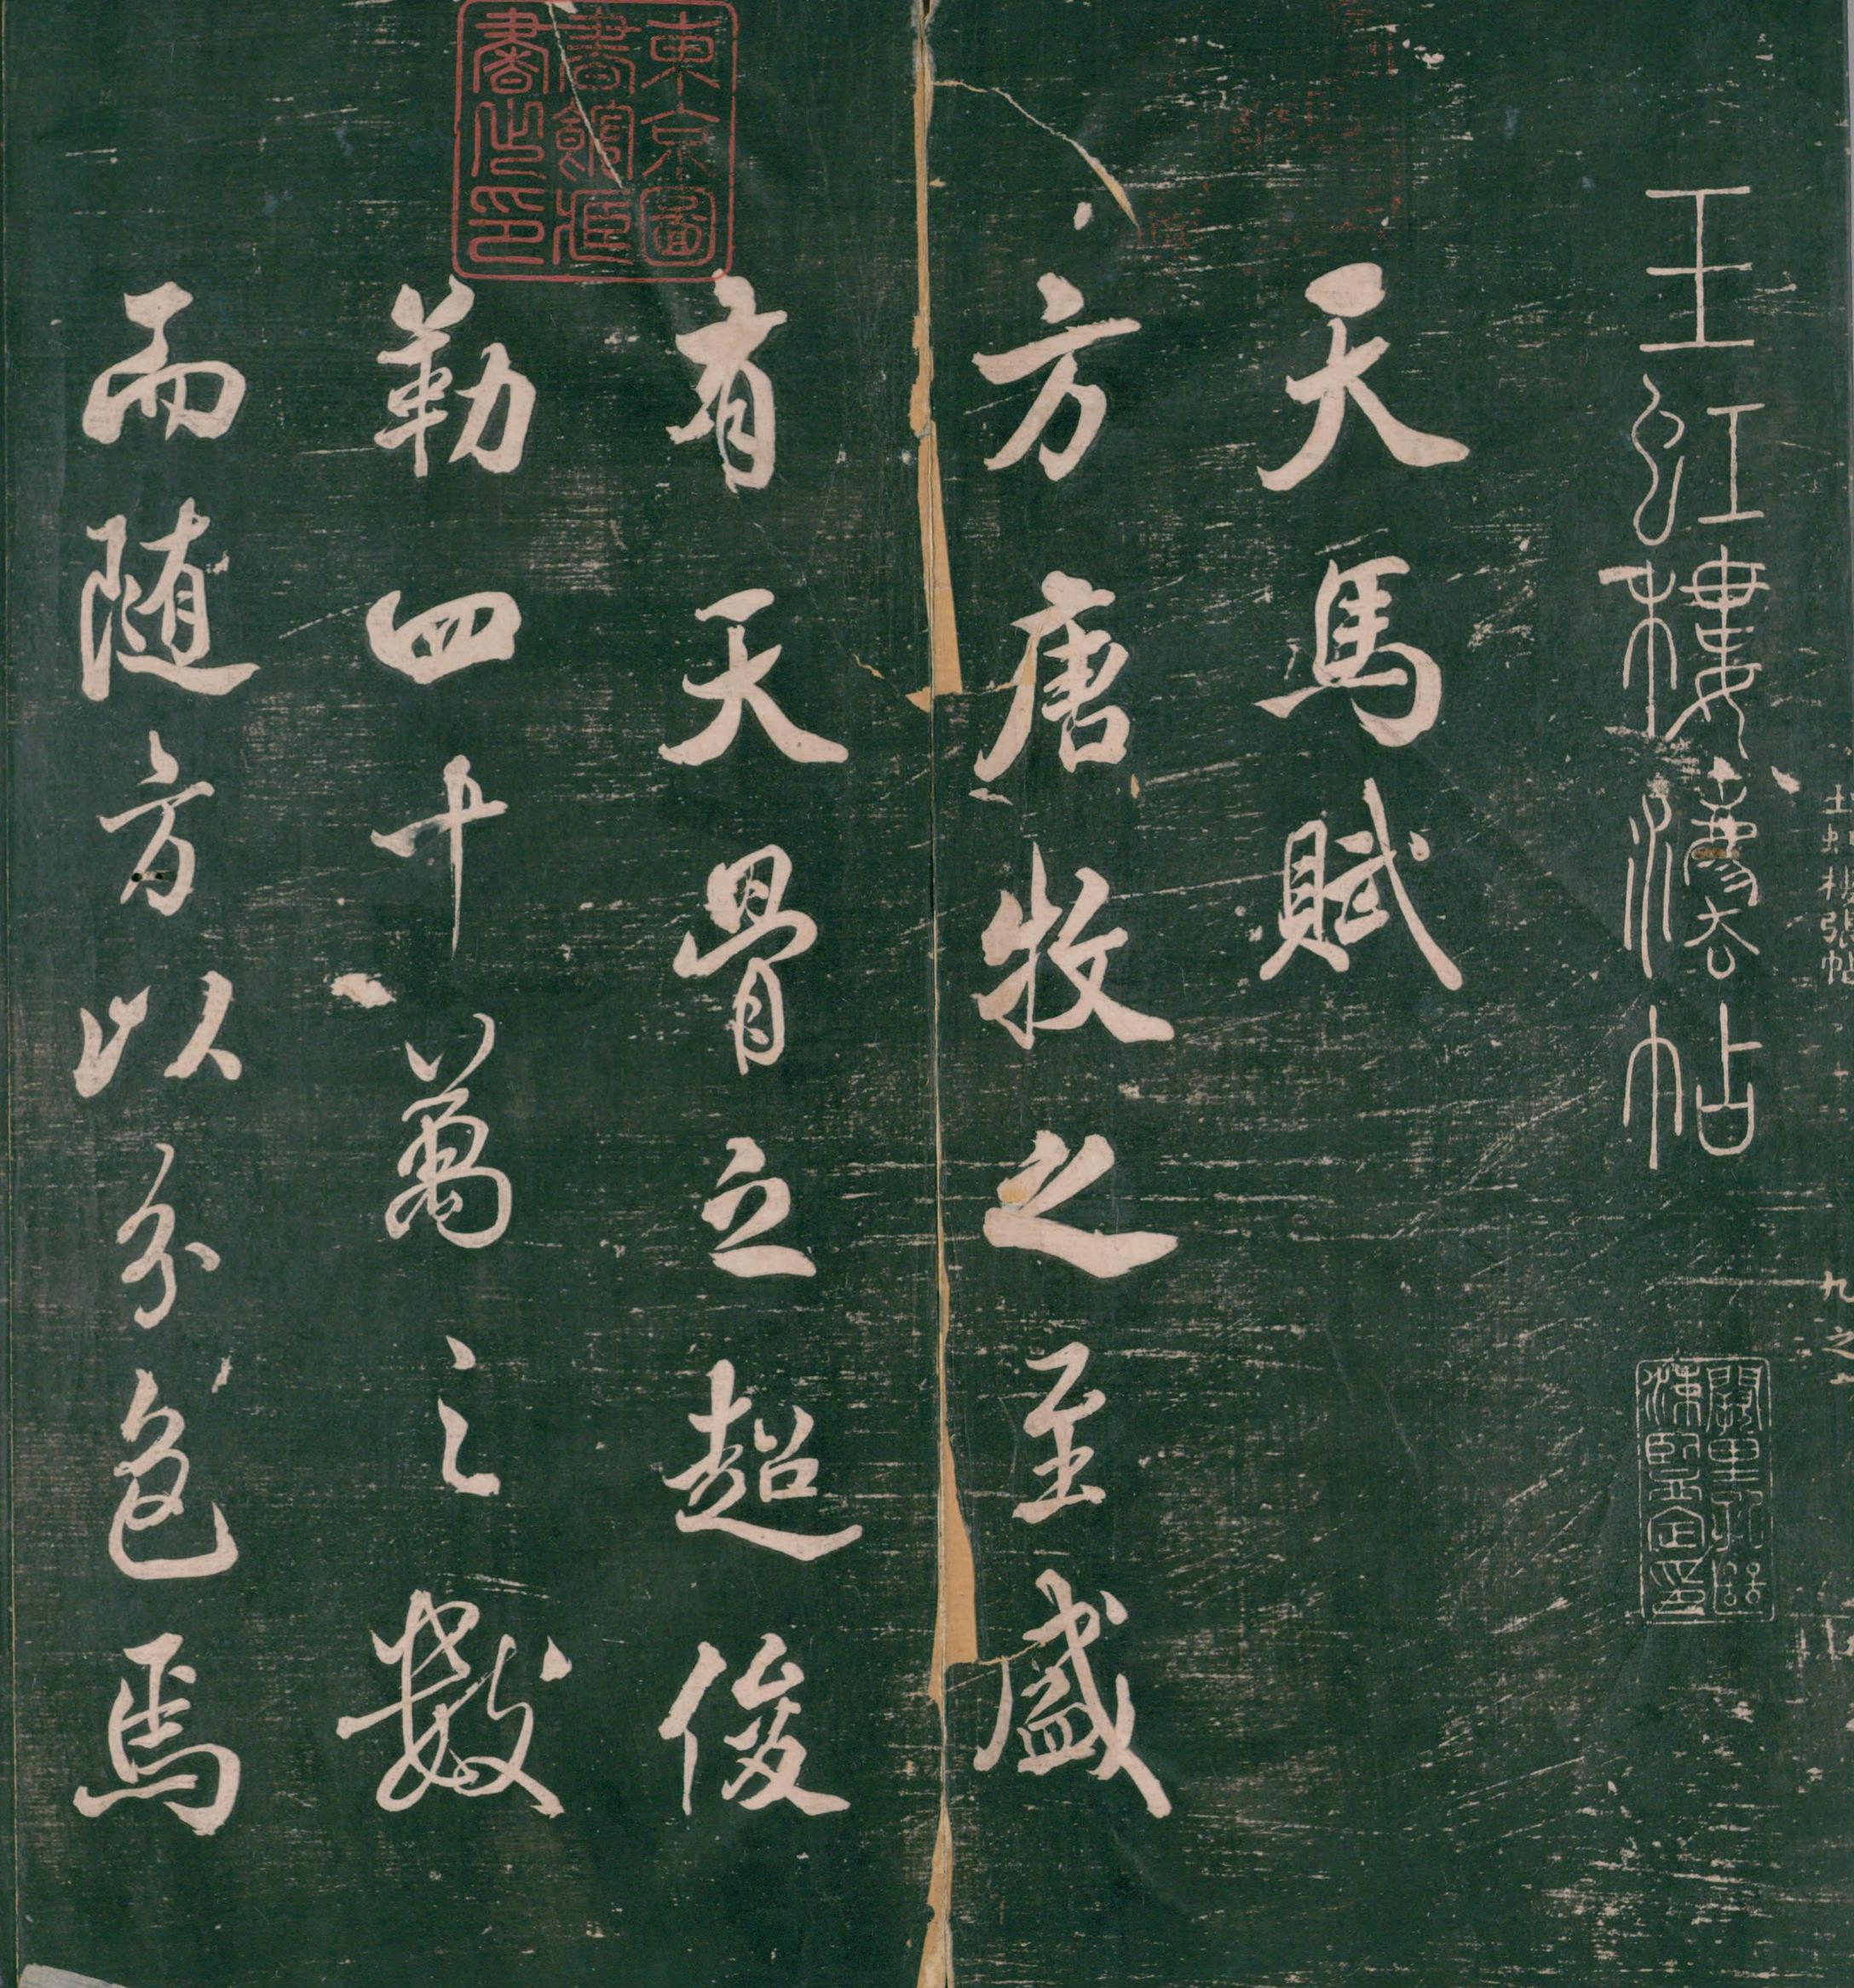 玉虹樓灋帖
闕里孔繼
涑監定印
天馬賦
方唐牧之至盛
有天骨之超俊
勒四十萬之數
而随方以分色焉
東京圖
書館臧
書之印